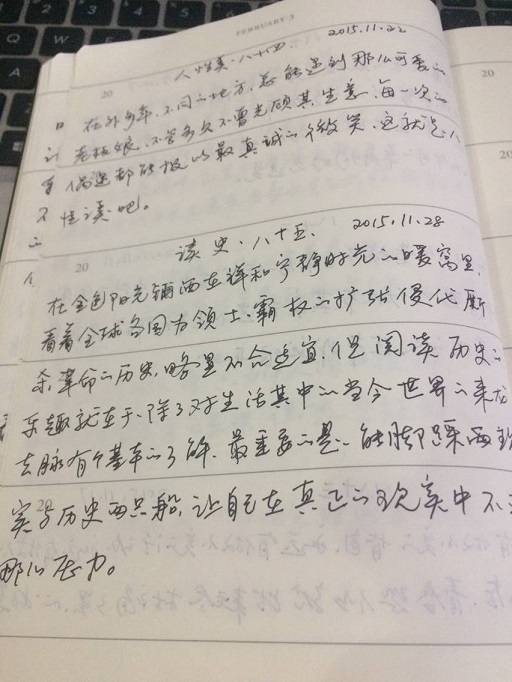 FEBRUARY·3
20
人性美·八十四. 2015.11.22
20
在外多年,不同的地方,总能遇到那么可爱的
老板娘,不管多久不曾光顾其生意,每一次的
偶遇都能报以最真诚的微笑,这就是人
性美吧。
20
读史·八十五. 2015.11.28
20
在金色阳光铺洒在祥和宁静时光的暖窝里,
看着全球各国为领土、霸权的扩张侵伐厮
杀,革命的历史,略显不合适宜,但阅读历史的
乐趣就在于、除了对生活其中的当今世界的来龙
去脉有个基本的了解,最重要的是,能脚踩两
20
实与历史两只船,让自己在真正的现实中不
那么压力。